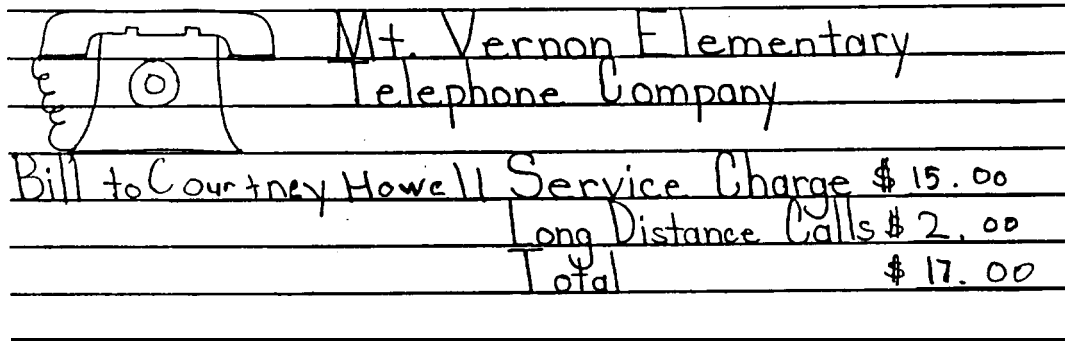 Mt. Vernon Elementary
Telephone Company
Bill to Courtney Howell Service Charge $ 15.00
Long Distance Calls $ 2.00
Total $ 17.00